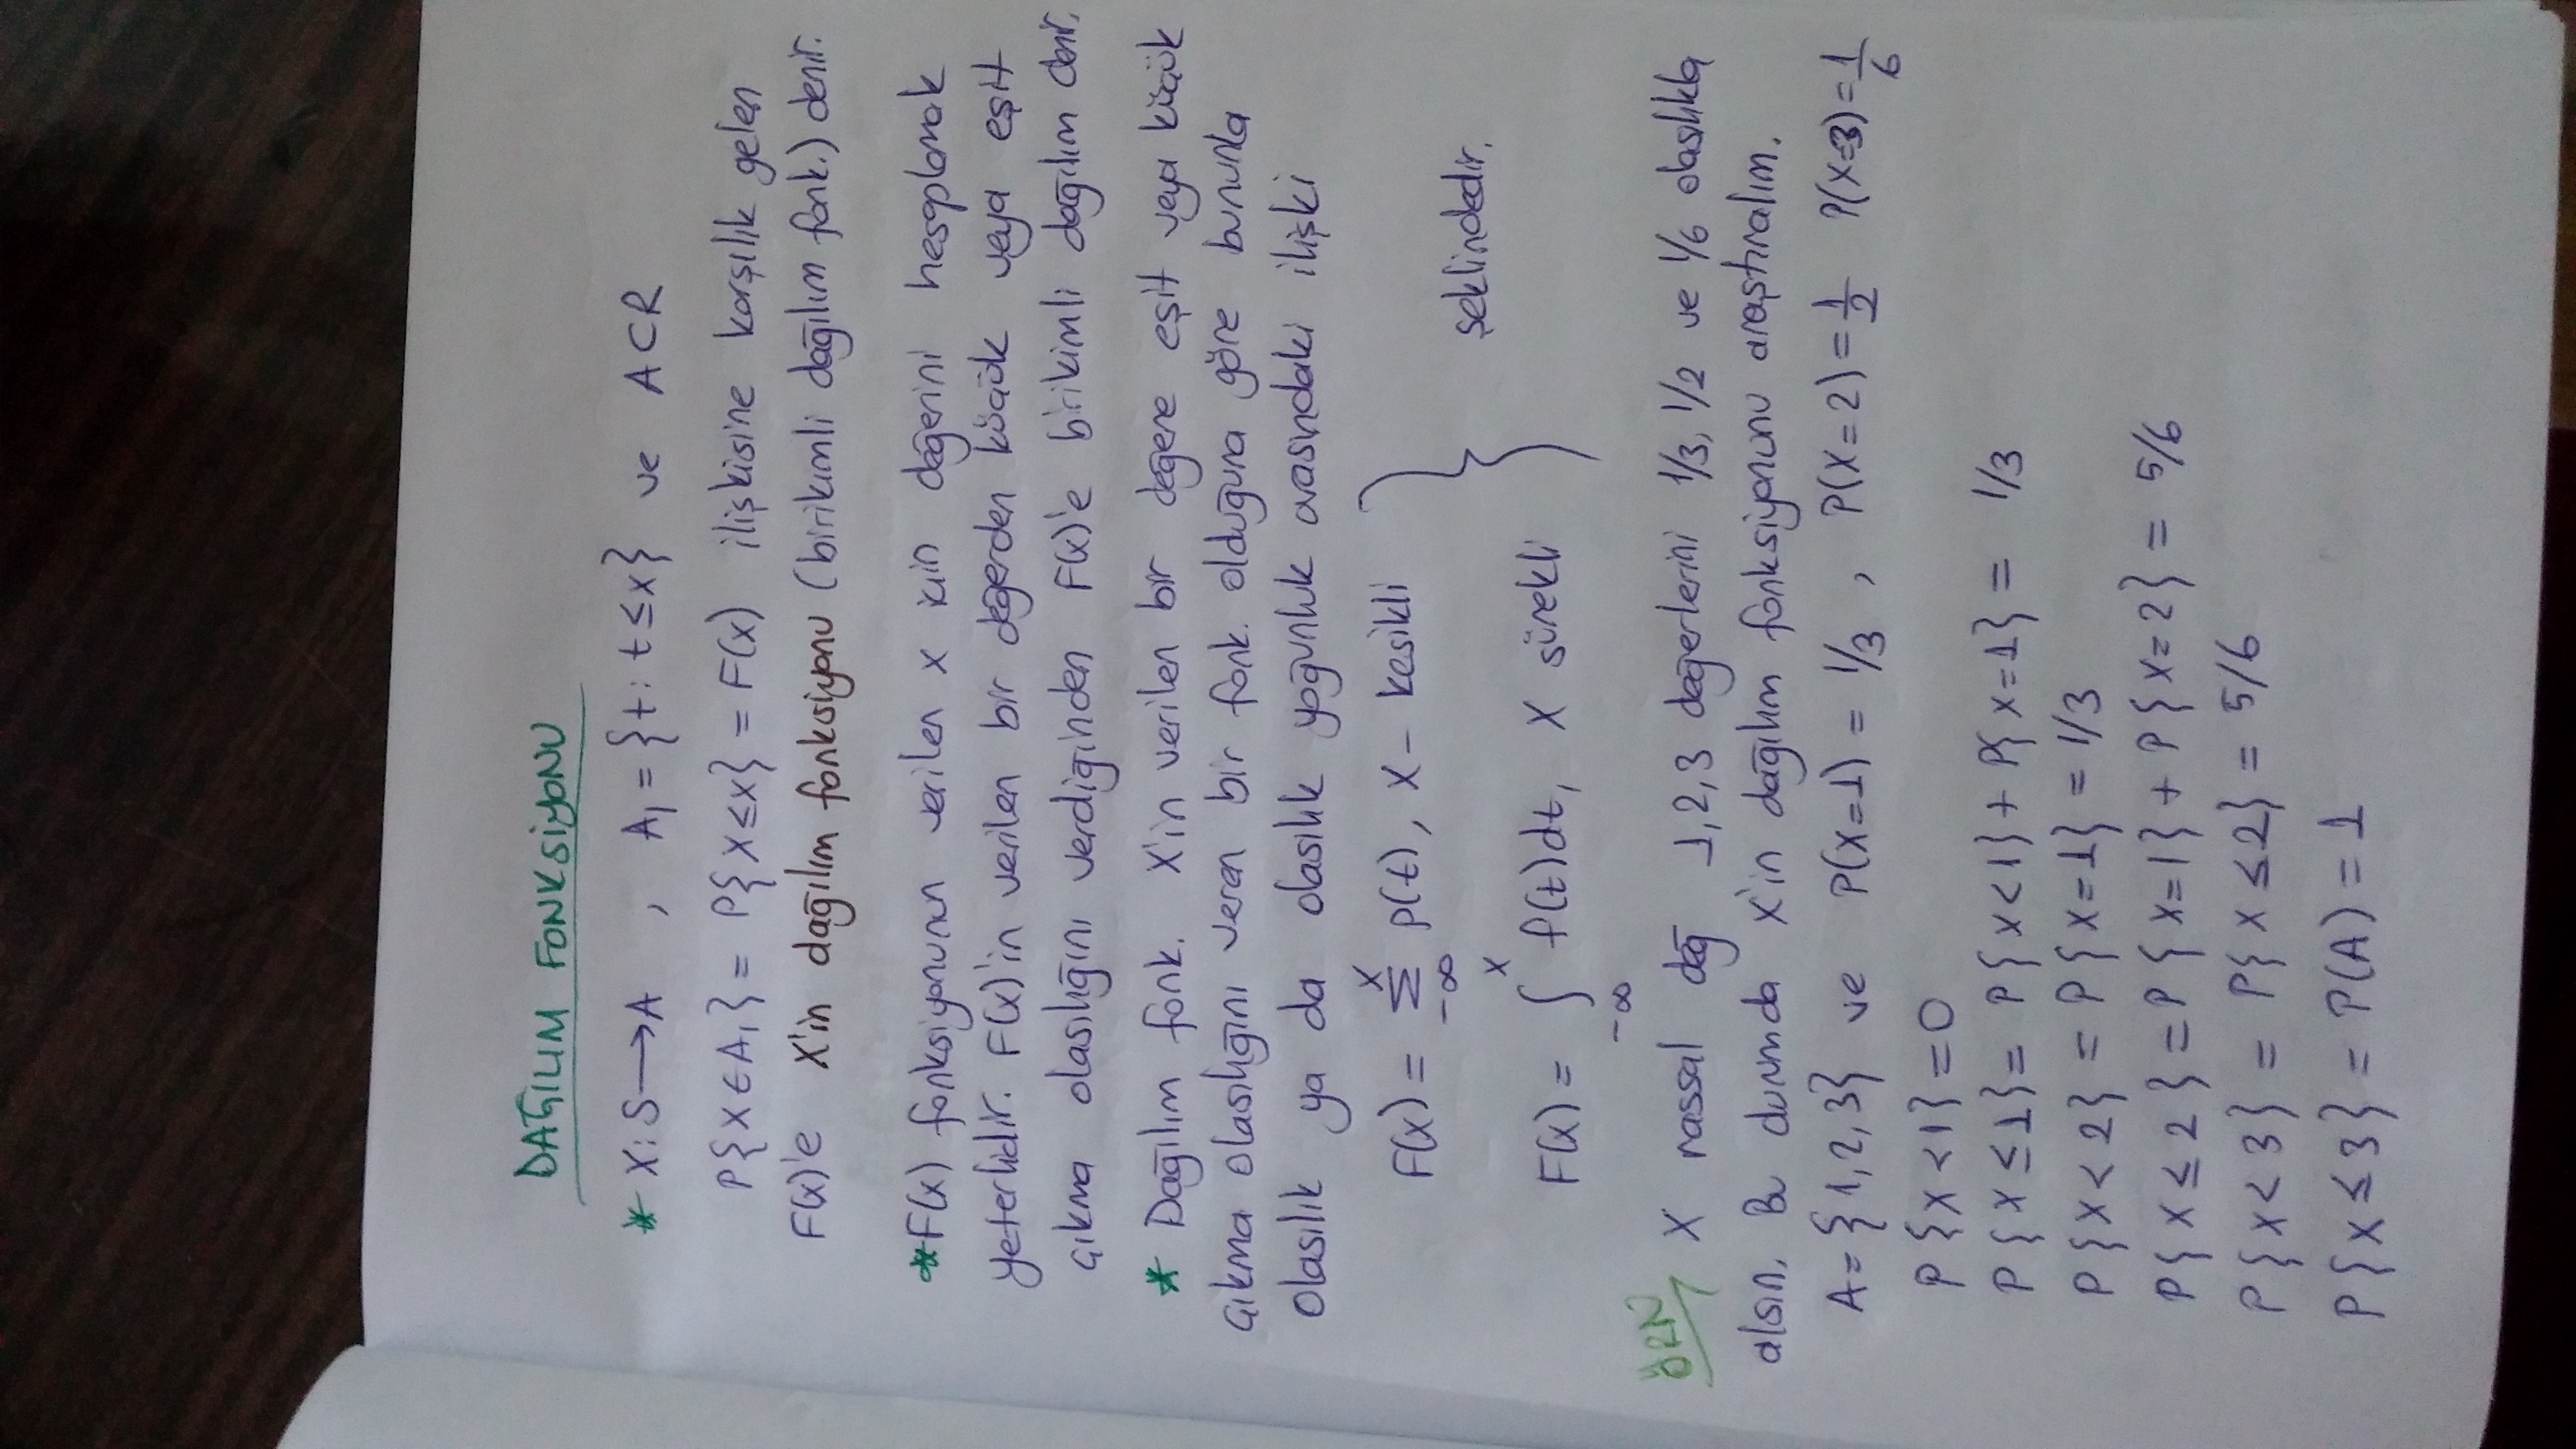 DAĞILIM FONKSİYONU
* X: S→A , A₁ = {t: t ≤ x} ve A⊂R
P{X∈A₁} = P{X≤x} = F(x) ilişkisine karşılık gelen
F(x)'e X'in dağılım fonksiyonu (birikimli dağılım fonk.) denir.
* F(x) fonksiyonunun verilen x için değerini hesaplamak
yeterlidir. F(x)'in verilen bir değerden küçük veya eşit
çıkma olasılığını verdiğinden F(x)'e birikimli dağılım denir.
* Dağılım fonk. X'in verilen bir değere eşit veya küçük
çıkma olasılığını veren bir fonk. olduğuna göre bununla
olasılık ya da olasılık yoğunluk arasındaki ilişki
F(x) = Σ_{-∞}^{x} p(t), X - kesikli
F(x) = ∫_{-∞}^{x} f(t)dt, X sürekli
şeklindedir.
ÖRN
X rassal değ 1,2,3 değerlerini 1/3, 1/2 ve 1/6 olasılıkla
alsın. Bu durumda X'in dağılım fonksiyonunu araştıralım.
A = {1,2,3} ve P(X=1) = 1/3 , P(X=2) = 1/2 P(X=3) = 1/6
P{X<1} = 0
P{X≤1} = P{X<1} + P{X=1} = 1/3
P{X<2} = P{X=1} = 1/3
P{X≤2} = P{X=1} + P{X=2} = 5/6
P{X<3} = P{X≤2} = 5/6
P{X≤3} = P(A) = 1